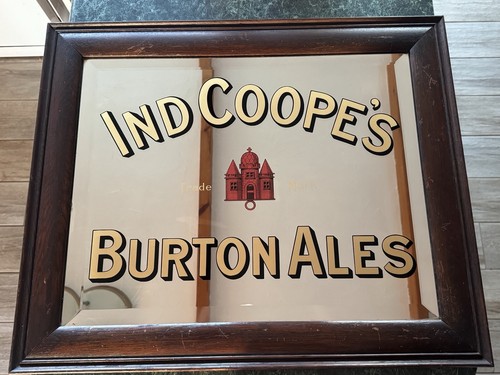 IND COOPE'S
Trade
BURTON ALES